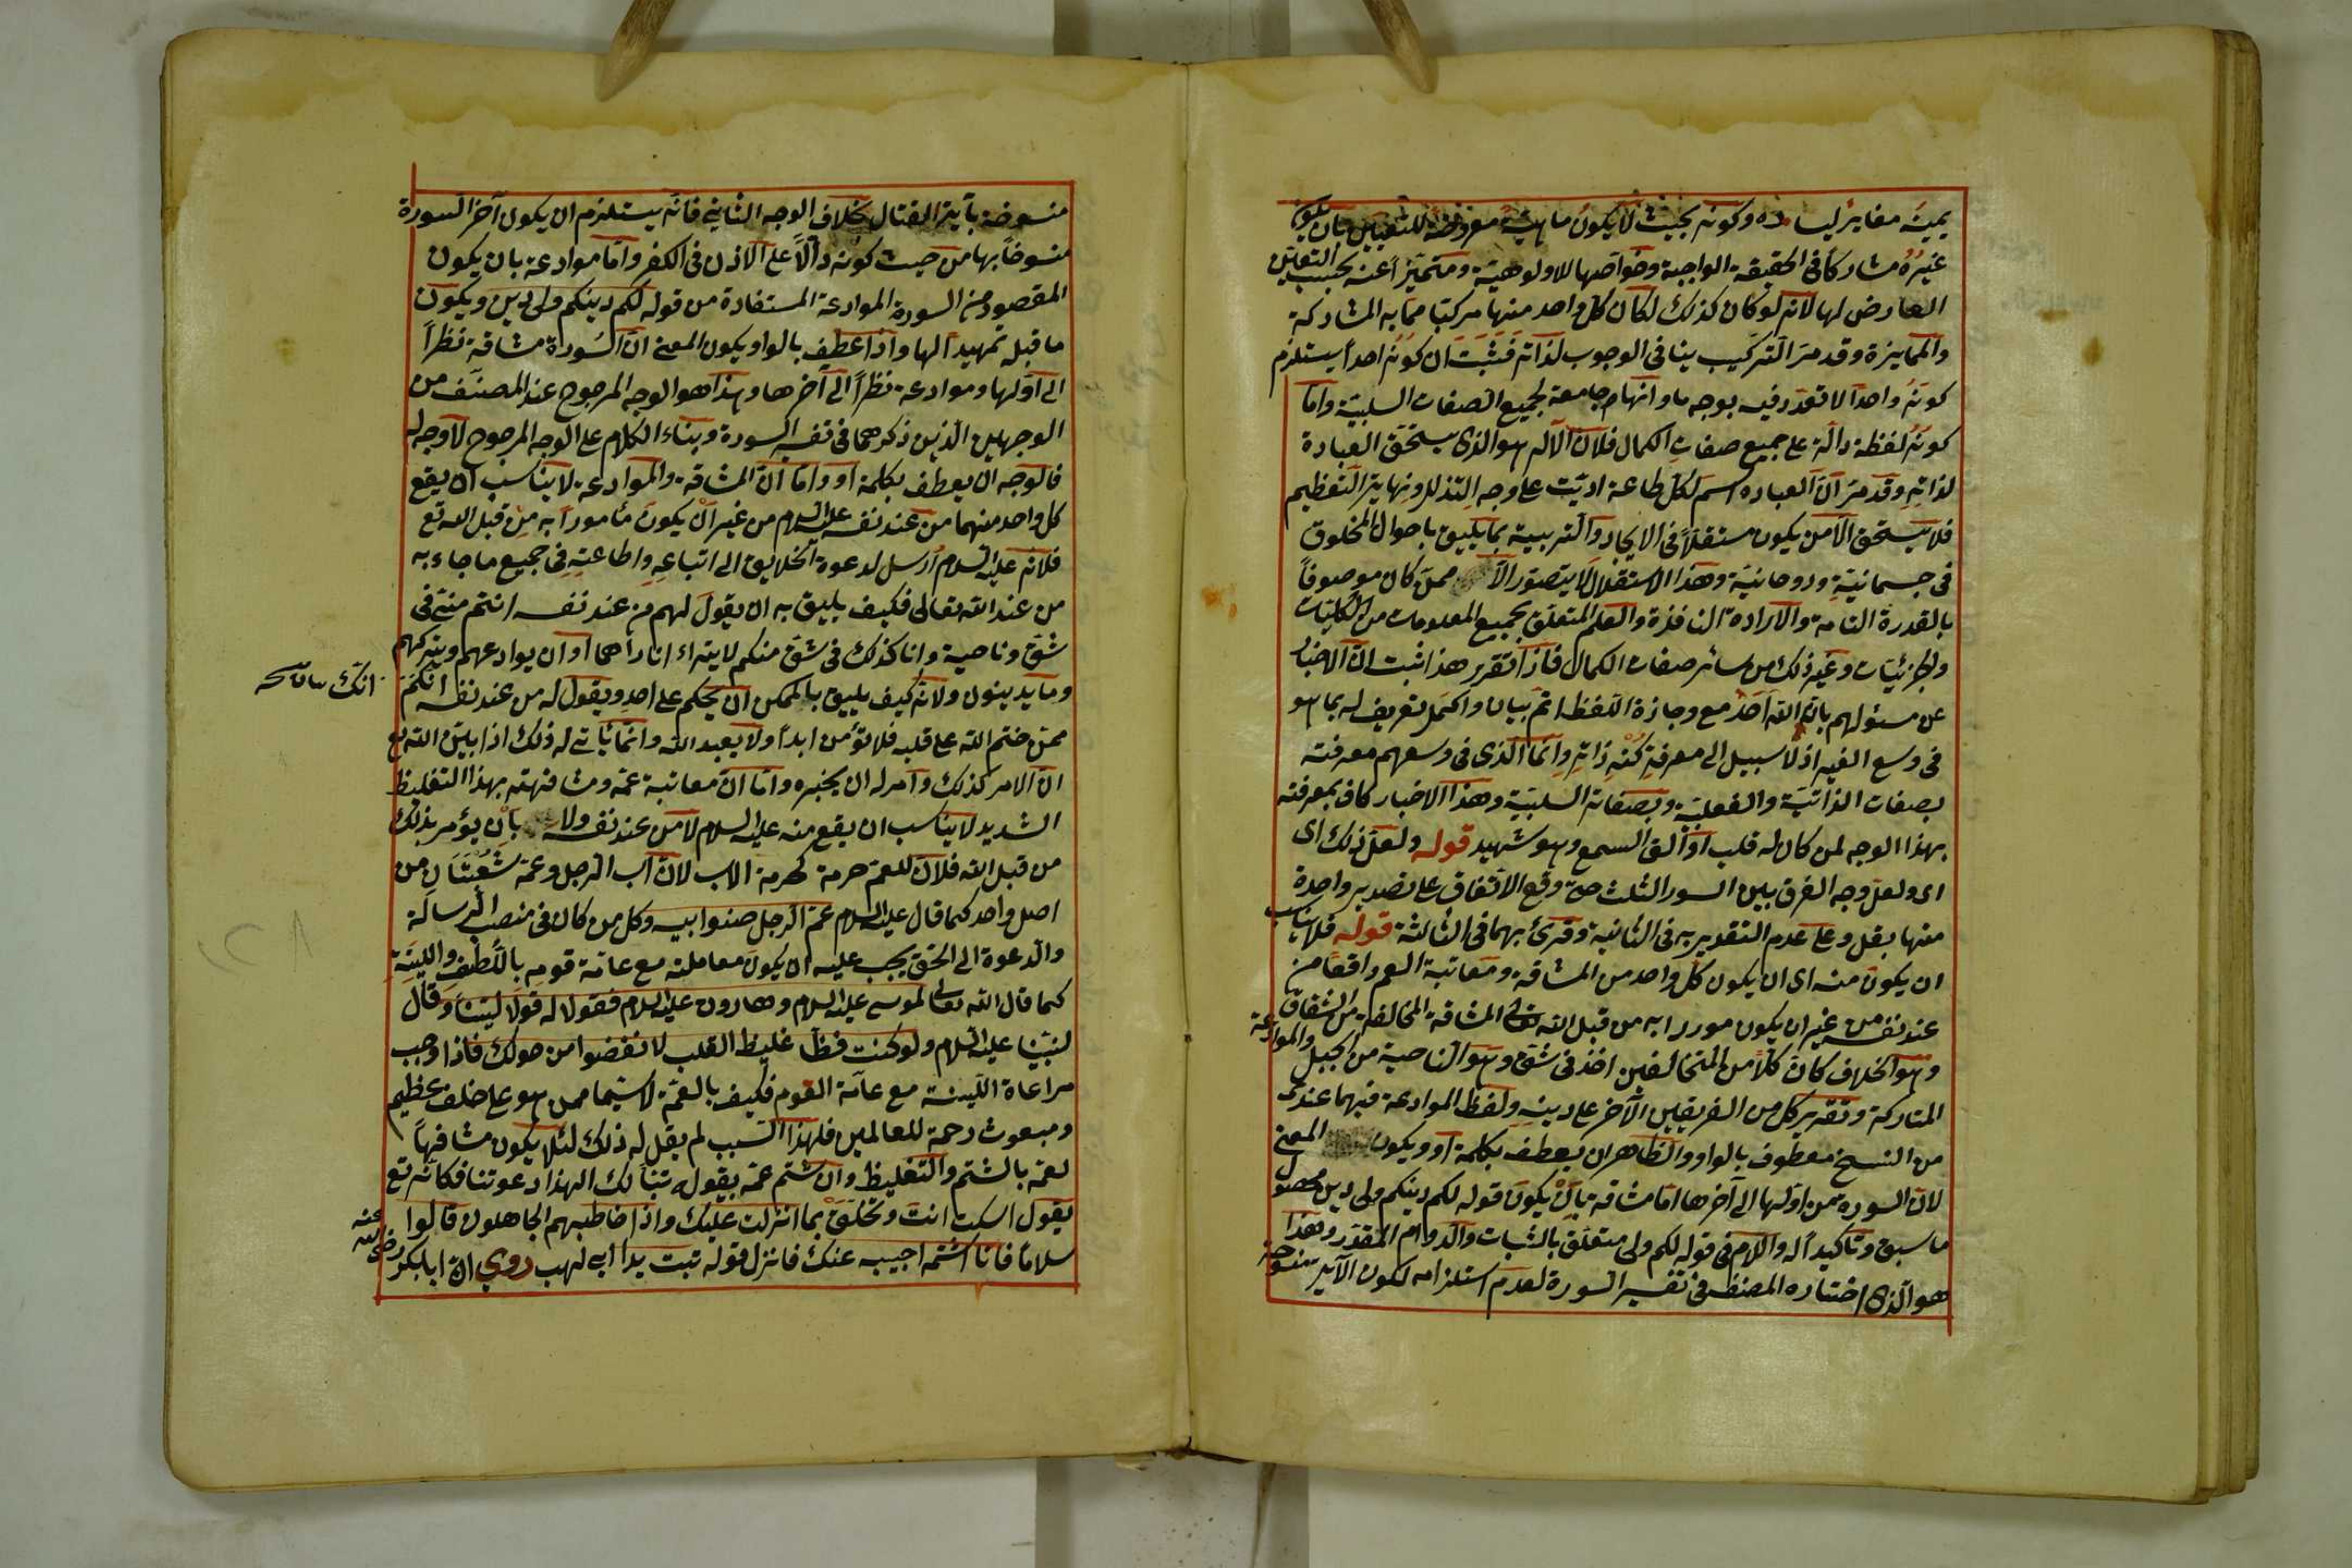 يمينه مغاير ليساره وكونه بحيث لا يكون ماهيته معروضة للتعيين بان يكون
غيرُهُ مشاركاً فى الحقيقة الواجبة وخواصها للاولوهية ومتميّزاً عنه بحسب التعيّن
العارض لها لانه لو كان كذلك لكان كل واحد منهما مركبا مما به المشاركة
والممايزة وقد مرّ التركيب ينافى الوجوب لذاته فَثَبَتَ ان كونُه احداً يستلزم
كونَهُ واحدا لا تعدّد فيه بوجه ما وانها جامعة لجميع الصفات السلبيّة وامّا
كونُهُ لفظة دالّة على جميع صفات الكمال فلانّ الآله هو الذى يستحقّ العبادة
لذاته وقد مرّ انّ العباده اسم لكل طاعة ادّيت على وجه التذلل ونهاية التعظيم
فلا يستحق الّا من يكون مستقلّاً فى الايجاد والتربية بما يليق باحوال المخلوق
فى جسمانيّة وروحانيّة وهذا الاستقلال لا يتصوّر الّا ممّن كان موصوفاً
بالقدرة التامة والارادة النافذة والعلم المتعلّق بجميع المعلومات من الكليّات
والجزئيات وغير ذلك من سائر صفات الكمال فاذا تقرر هذا ثبت انّ الاخبار
عن مسئولهم بانّه الله اَحَدٌ مع وجازة اللّفظ اتمّ بيان واكمل تعريف له بما هو
فى وسع الغير اذ لا سبيل الى معرفة كُنْهِ ذاته وانّما الّذى فى وسعهم معرفته
بصفات الذاتيّة والفعليّة وبصفاته السلبيّة وهذا الاخبار كاف بمعرفته
بهذا الوجه لمن كان له قلب او القى السمع وهو شهيد قوله ولعلّ ذلك اى
اى ولعلّ وجه الفرق بين السور الثلث حتى وقع الاتّفاق على تصدير واحدة
منها بقل وعلى عدم التقدير به فى الثانية وقرئ بهما فى الثالثة قوله فلا يناسب
ان يكون منه اى ان يكون كلّ واحد من المشاقة ومعاتبة العم واقعاً من
عند نفسه من غير ان يكون مورد ابه من قبل الله تعالى المشاقة المخالفة من الشقاق
وهو الخلاف كان كلّاً من المتخالفين اخذ فى شقّ وهو الناحية من الجبل والموادعة
المتاركة وتقرير كل من الفريقين الآخر على دينه ولفظ الموادعة فيهما عندى
من النسخ معطوف بالواو والظاهر ان يعطف بكلمة او ويكون المعنى
لانّ السوره من اولها الى آخرها امّا مشاقة بان يكون قوله لكم دينكم ولى دين محصول
ما سبق وتاكيداً له واللام فى قوله لكم ولى متعلّق بالثبات والدوام المقدّر وهذا
هو الّذى اختاره المصنف فى تفسير السورة لعدم استلزامه لكون الآية منسوخة
منسوخة بآية القتال بخلاف الوجه الثانى فانّه يستلزم ان يكون آخر السورة
منسوخاً بها من حيث كونه دالّاً على الاذن فى الكفر وامّا موادعة بان يكون
المقصود من السورة الموادعة المستفادة من قوله لكم دينكم ولى دين ويكون
ما قبله تمهيداً لها واذا عطف بالواو يكون المعنى انّ السُورة مشاقة نظراً
الى اوّلها وموادعة نظراً الى آخرها وهذا هو الوجه المرجوح عند المصنّف من
الوجهين الّذين ذكرهما فى تفسير السورة وبناء الكلام على الوجه المرجوح لا وجه له
فالوجه ان يعطف بكلمة او وامّا انّ المشاقة والموادعة لا يناسب ان يقع
كل واحد منهما من عند نفسه عليه السلام من غير ان يكون مأموراً به من قبل الله تع
فلانه عليه السلام اُرسل لدعوة الخلايق الى اتباعه واطاعته فى جميع ما جاء به
من عند الله تعالى فكيف يليق به ان يقول لهم من عند نفسه انتم منّى فى
شقّ وناحية وانا كذلك فى شقّ منكم لا يتراء انا راهما او ان يوادعهم ويتركهم
وما يدينون ولانّه كيف يليق بالممكن ان يحكم على احد ويقول له من عند نفسه انكم
انّك
ممّن ختم الله على قلبه فلا تؤمن ابداً ولا يعبد الله وانّما يأتى له ذلك اذا بيّن الله تع
انّ الامر كذلك وامر له ان يخبره وامّا انّ معاتبة عمّه ومشافهته بهذا التغليظ
الشديد لا يناسب ان يقع منه عليه السلام لا من عند نفسه ولا بأن يؤمر بذلك
من قبل الله فلانّ للعمّ حرمة كحرمة الاب لانّ اب الرجل وعمّه شُعْبَتان من
اصل واحد كما قال عليه السلام عمّ الرجل صنو ابيه وكل من كان فى منصب الرسالة
والدعوة الى الحق يجب عليه ان يكون معاملته مع عامّة قومه باللّطف واللينة
كما قال الله تعالى لموسى عليه السلام وهارون عليه السلام فقولا له قولا ليّنا وقال
لنبيّنا عليه السلام ولو كنت فظّا غليظ القلب لانفضوا من حولك فاذا وجب
مراعاة اللّينة مع عامّة القوم فكيف بالعمّ لا سيّما ممن هو على خلق عظيم
ومبعوث رحمة للعالمين فلهذا السّبب لم يقل له ذلك لئلا يكون مشافهاً
لعمّه بالشتم والتغليظ وان شتم عمّه بقوله تبّاً لك الهذا دعوتنا فكانّه تع
يقول اسكت انت وتَخَلَّقْ بما انزلت عليك واذا خاطبهم الجاهلون قالوا
سلاماً فانا اشتمه اجيبه عنك فانزل قوله تبت يدا ابى لهب روي انّ ابا بكر رضى الله عنه